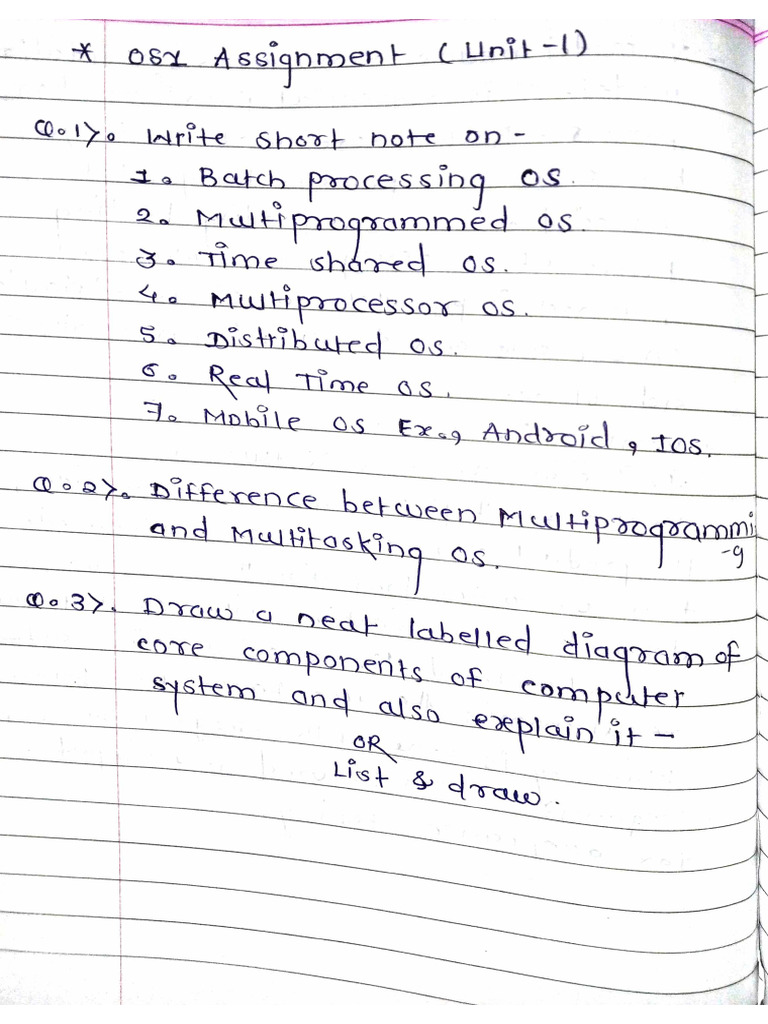 * OSY Assignment (Unit-1)
Q.1>. Write short note on -
1. Batch processing OS.
2. Multiprogrammed OS.
3. Time shared OS.
4. Multiprocessor OS.
5. Distributed OS.
6. Real Time OS.
7. Mobile OS Ex., Android, IOS.
Q.2>. Difference between Multiprogrammi
-g
and Multitasking OS.
Q.3>. Draw a neat labelled diagram of
core components of computer
system and also explain it -
OR
List & draw.